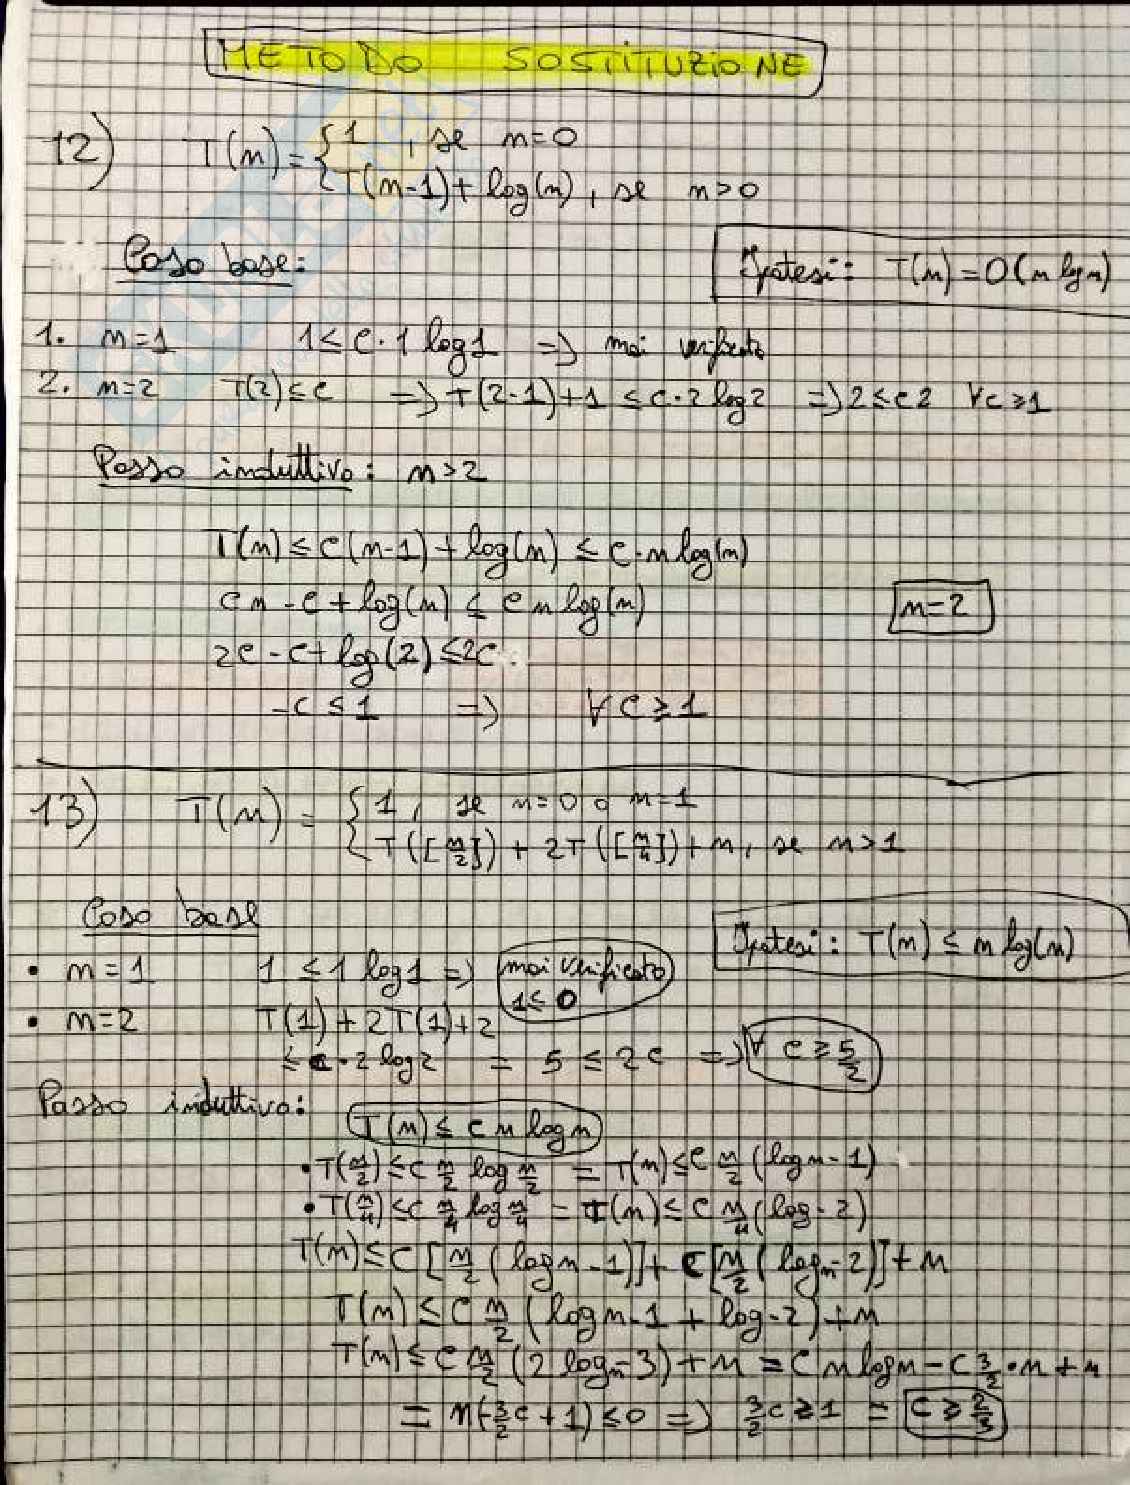 METODO SOSTITUZIONE
12) T(n) = { 1 , se n=0
T(n-1) + log(n) , se n>0
Caso base:
Ipotesi: T(n) = O(n log n)
1. n=1 1 ≤ c·1 log 1 => mai verificato
2. n=2 T(2) ≤ c => T(2-1)+1 ≤ c·2 log 2 => 2 ≤ c2 ∀c ≥ 1
Passo induttivo: n>2
T(n) ≤ c(n-1) + log(n) ≤ c·n log(n)
cn - c + log(n) ≤ cn log(n)
n=2
2c - c + log(2) ≤ 2c
-c ≤ 1 => ∀ c ≥ 1
13) T(n) = { 1 , se n=0 o n=1
T([n/2]) + 2T([n/4]) + n , se n>1
Caso base
Ipotesi: T(n) ≤ n log(n)
• n=1 1 ≤ 1 log 1 => mai verificato
1 ≤ 0
• n=2 T(1) + 2T(1) + 2
≤ c·2 log 2 = 5 ≤ 2c => ∀ c ≥ 5/2
Passo induttivo:
T(n) ≤ c n log n
• T(n/2) ≤ c n/2 log n/2 = T(n) ≤ c n/2 (log n - 1)
• T(n/4) ≤ c n/4 log n/4 = T(n) ≤ c n/4 (log - 2)
T(n) ≤ c [n/2 (log n - 1)] + c [n/2 (log n - 2)] + n
T(n) ≤ c n/2 (log n - 1 + log - 2) + n
T(n) ≤ c n/2 (2 log n - 3) + n = c n log n - c 3/2 · n + n
= n(-3/2 c + 1) ≤ 0 => 3/2 c ≥ 1 = c ≥ 2/3